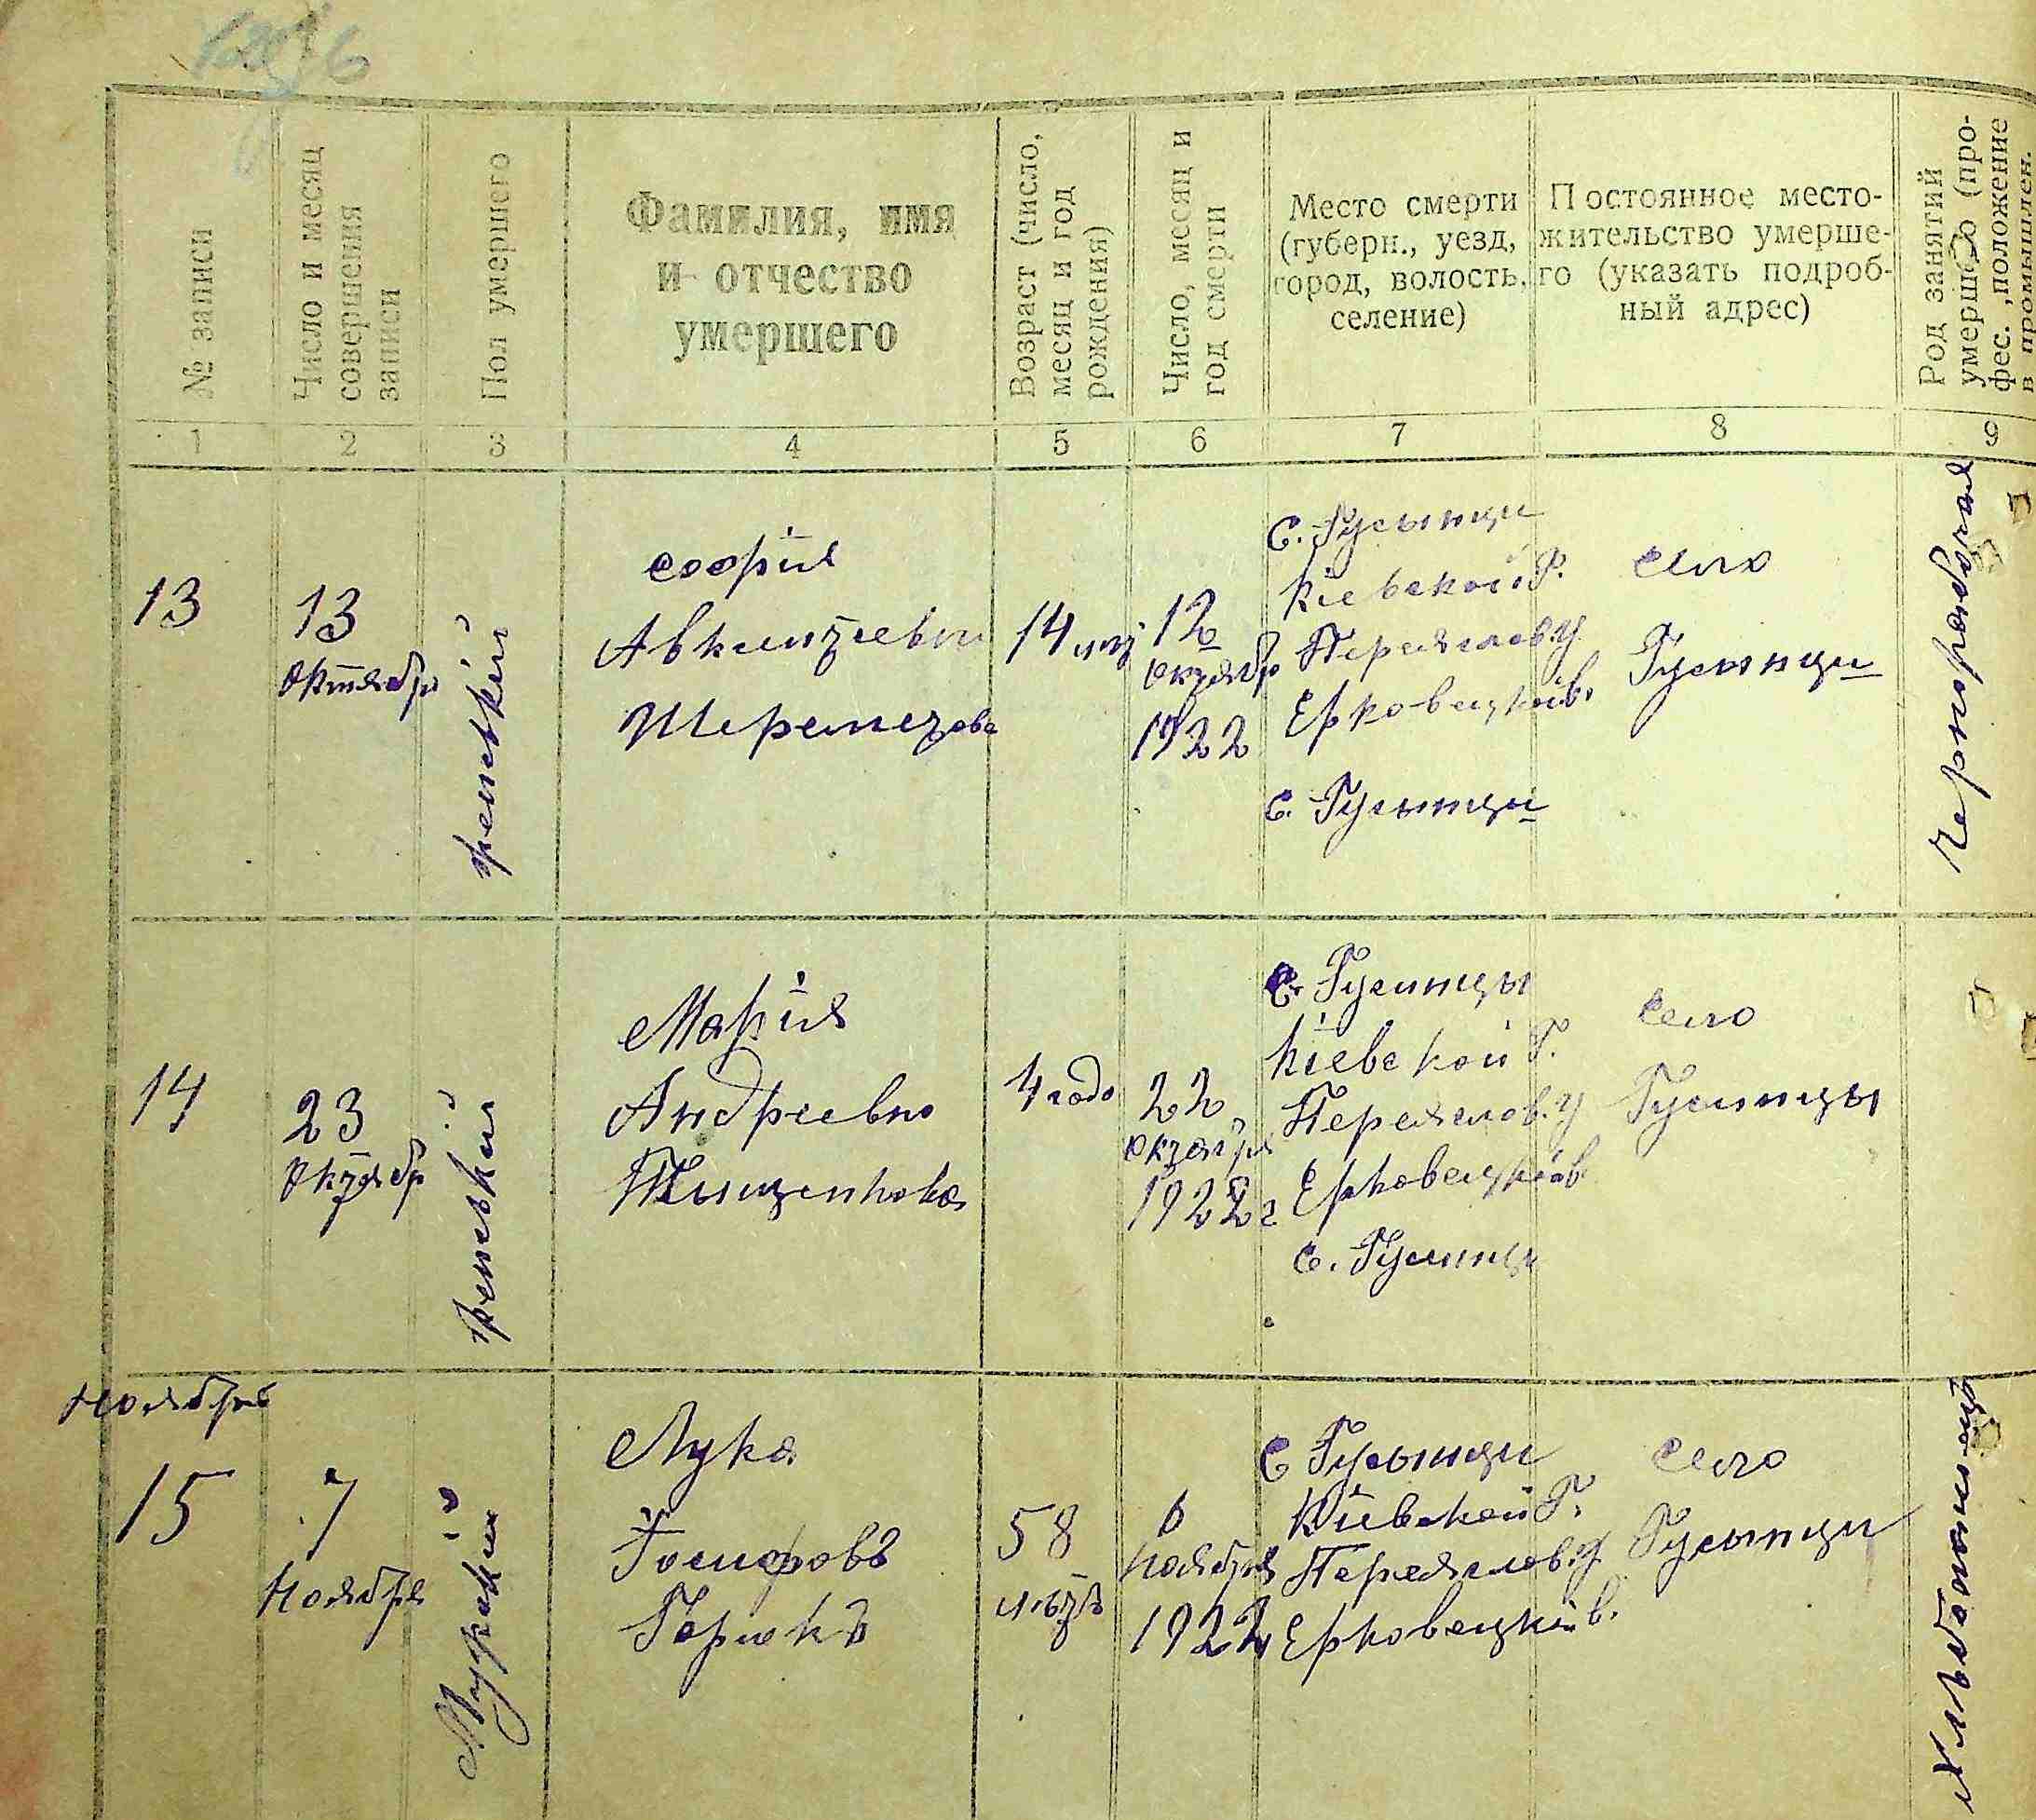 № записи
Число и месяц
совершения
записи
Пол умершего
Фамилия, имя
и отчество
умершего
Возраст (число,
месяц и год
рождения)
Число, месяц и
год смерти
Место смерти
(губерн., уезд,
город, волость,
селение)
Постоянное место-
жительство умерше-
го (указать подроб-
ный адрес)
Род занятий
умершего (про-
фес., положение
в промышлен.
1 2 3 4 5 6 7 8 9
13
13
Октябр
женскій
софія
Шереметова
14 лет
12
октябр
1922
С. Гусынци
Кіевской Г.
Переяслов. У.
Ерковецкой в.
С. Гусынци
село
Гусынци
Чернорабочая
14
23
Октябр
женскій
Марія
Андреевна
Тищенкова
4 года
22
октября
1922 г
С. Гусинцы
Кіевской Г.
Переяслов. У
Ерковецкой в
с. Гусинци
село
Гусинцы
Ноябрь
15
7
Ноября
Мужской
Лука
Іосифовъ
58
летъ
6
ноября
1922
С Гусынци
Кіевской Г.
Переяслов. У
Ерковецкой в.
село
Гусынци